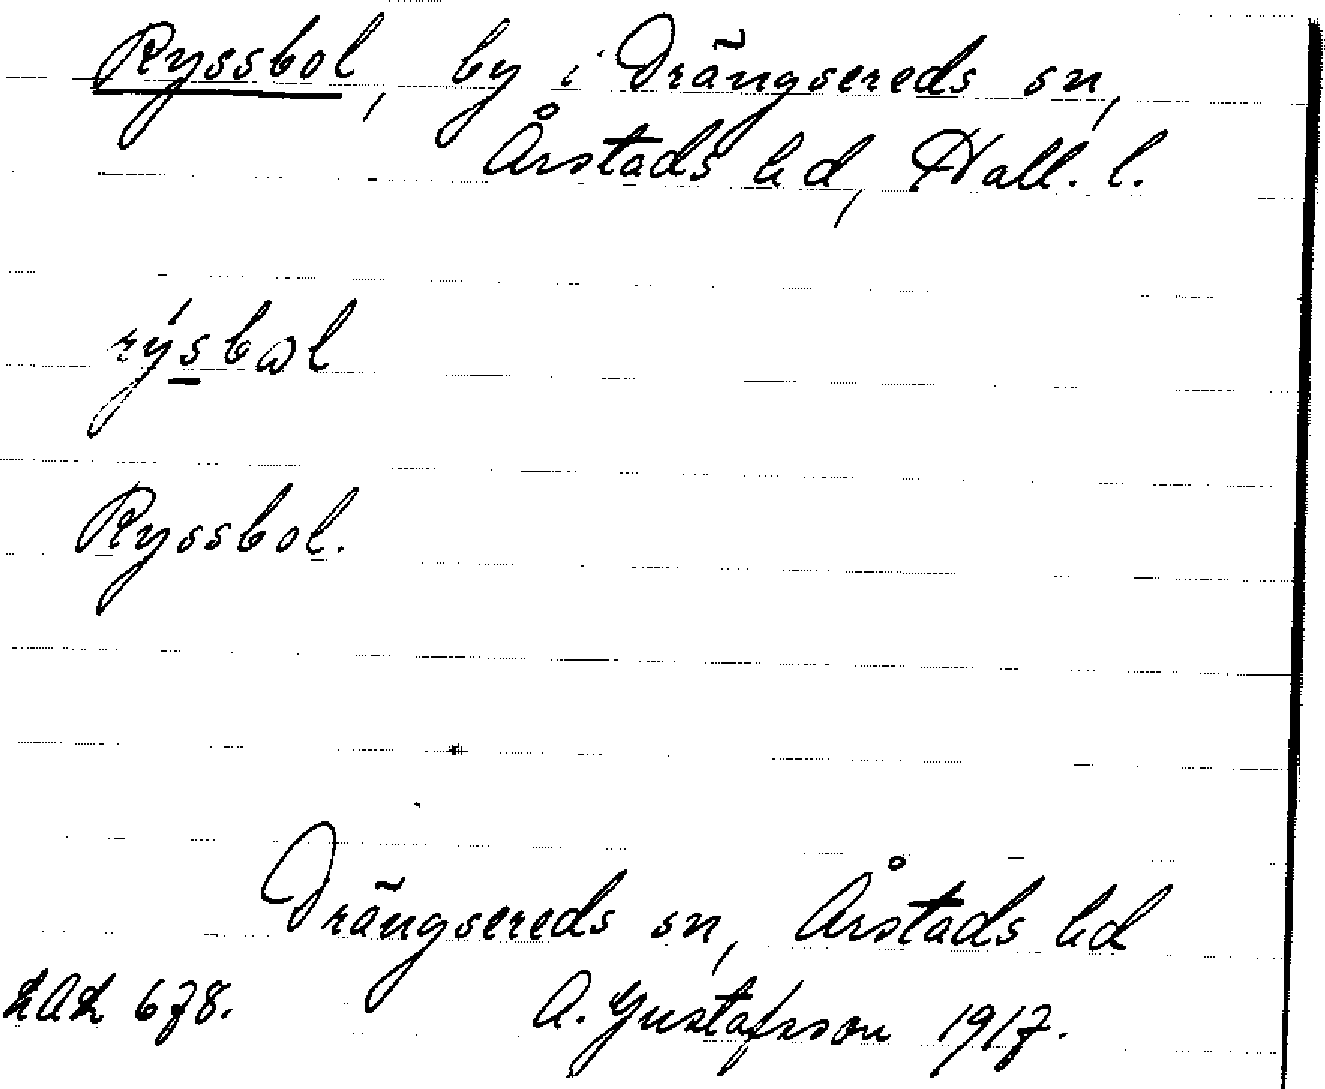 Ryssbol, by i Drängsereds sn,
Årstads hd, Hall. l.
rýsbωl
Ryssbol.
Drängsereds sn, Årstads hd
LAL 678. A. Gustafsson 1917.